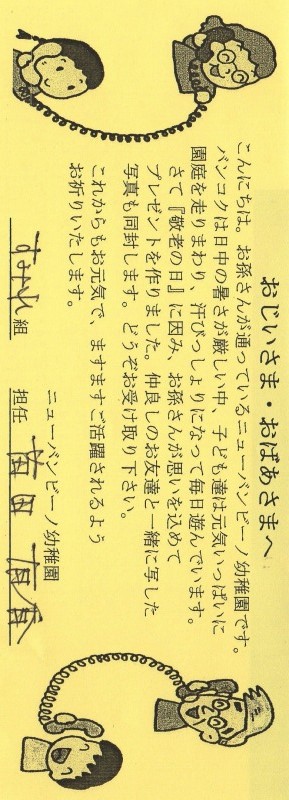 おじいさま・おばあさまへ
こんにちは。お孫さんが通っているニューバンビーノ幼稚園です。
バンコクは日中の暑さが厳しい中、子ども達は元気いっぱいに
園庭を走りまわり、汗びっしょりになって毎日遊んでいます。
さて『敬老の日』に因み、お孫さんが思いを込めて
プレゼントを作りました。仲良しのお友達と一緒に写した
写真も同封します。どうぞお受け取り下さい。
これからもお元気で、ますますご活躍されるよう
お祈りいたします。
ニューバンビーノ幼稚園
すみれ組 担任